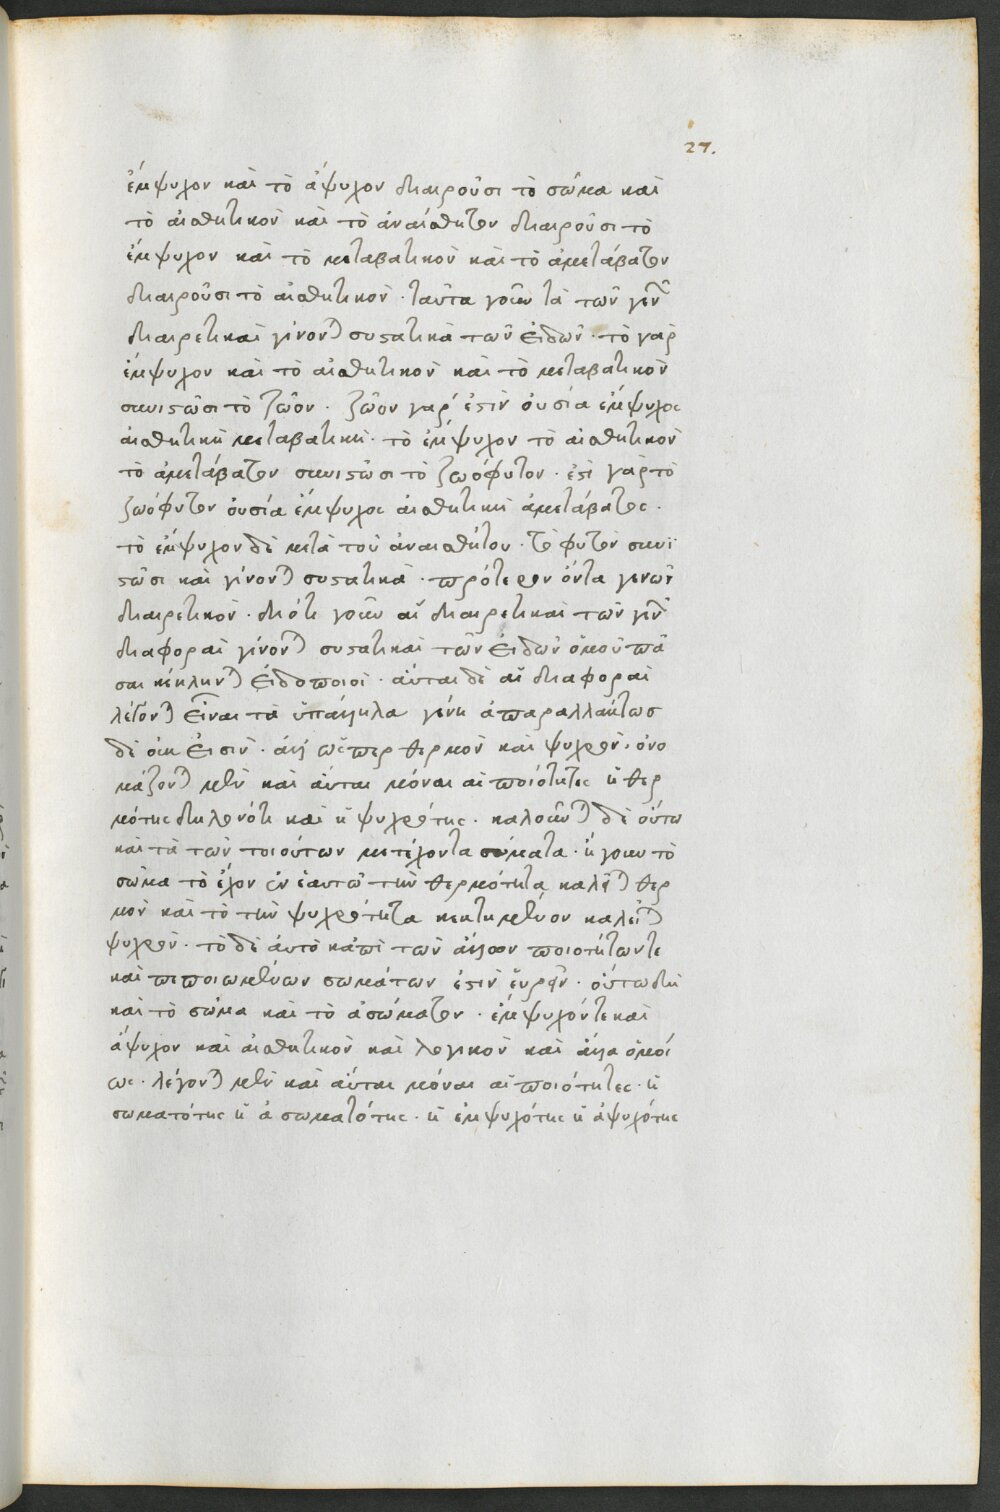 27.
ἔμψυχον καὶ τὸ ἄψυχον διαιροῦσι τὸ σῶμα καὶ
τὸ αἰσθητικὸν καὶ τὸ ἀναίσθητον διαιροῦσι τὸ
ἔμψυχον καὶ τὸ μεταβατικὸν καὶ τὸ ἀμετάβατον
διαιροῦσι τὸ αἰσθητικὸν · ταῦτα γοῦν τὰ τῶν γενῶν
διαιρετικαὶ γίνονται συστατικὰ τῶν εἰδῶν · τὸ γὰρ
ἔμψυχον καὶ τὸ αἰσθητικὸν καὶ τὸ μεταβατικὸν
συνιστῶσι τὸ ζῶον · ζῶον γάρ ἐστιν οὐσία ἔμψυχος
αἰσθητικὴ μεταβατικὴ · τὸ ἔμψυχον τὸ αἰσθητικὸν
τὸ ἀμετάβατον συνιστῶσι τὸ ζωόφυτον · ἐστὶ γὰρ τὸ
ζωόφυτον οὐσία ἔμψυχος αἰσθητικὴ ἀμετάβατος ·
τὸ ἔμψυχον δὲ μετὰ τοῦ ἀναισθήτου · τὸ φυτὸν συνι
στῶσι καὶ γίνονται συστατικὰ · πρότερον ὄντα γενῶν
διαιρετικὸν · διότι γοῦν αἱ διαιρετικαὶ τῶν γενῶν
διαφοραὶ γίνονται συστατικαὶ τῶν εἰδῶν ὁμοῦ πᾶ
σαι κέκληνται εἰδοποιοὶ · αὗται δὲ αἱ διαφοραὶ
λέγονται εἶναι τὰ ὑπάλληλα γένη ἀπαραλλάκτως
δὲ οὐκ εἰσὶν · ἀλλ' ὥσπερ θερμὸν καὶ ψυχρὸν · ὀνο
μάζονται μὲν καὶ αὗται μόναι αἱ ποιότητες ἡ θερ
μότης δηλονότι καὶ ἡ ψυχρότης · καλοῦνται δὲ οὕτω
καὶ τὰ τῶν τοιούτων μετέχοντα σώματα · ἤγουν τὸ
σῶμα τὸ ἔχον ἐν ἑαυτῶ τὴν θερμότητα καλεῖται θερ
μὸν καὶ τὸ τὴν ψυχρότητα κεκτημένον καλεῖται
ψυχρὸν · τὸ δὲ αὐτὸ κἀπὶ τῶν ἄλλων ποιοτήτων τε
καὶ πεποιωμένων σωμάτων ἐστὶν εὑρεῖν · οὕτω δὴ
καὶ τὸ σῶμα καὶ τὸ ἀσώματον · ἔμψυχόν τε καὶ
ἄψυχον καὶ αἰσθητικὸν καὶ λογικὸν καὶ ἄλλα ὁμοί
ως · λέγονται μὲν καὶ αὗται μόναι αἱ ποιότητες · ἡ
σωματότης ἡ ἀσωματότης · ἡ ἐμψυχότης ἡ ἀψυχότης